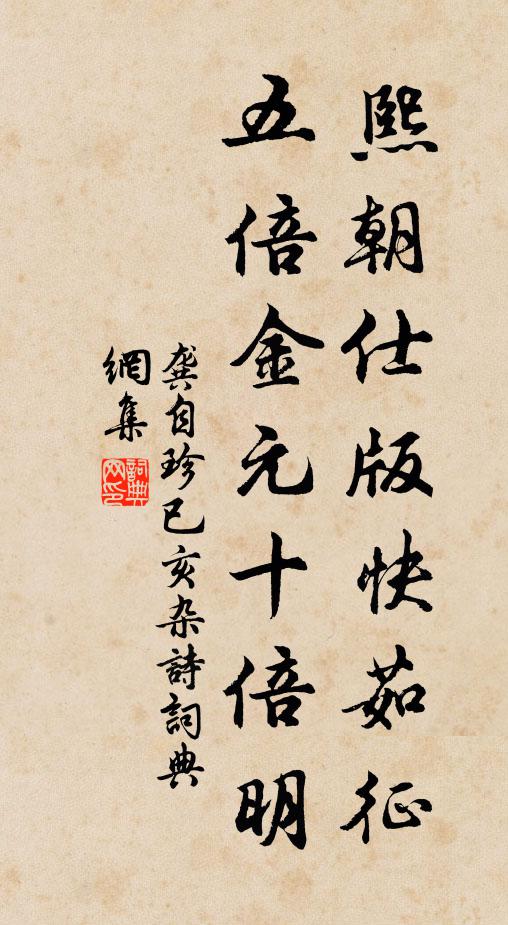 熙朝仕版快茹征
五倍金元十倍明
龚自珍已亥杂詩詞典
網集
詞典网印